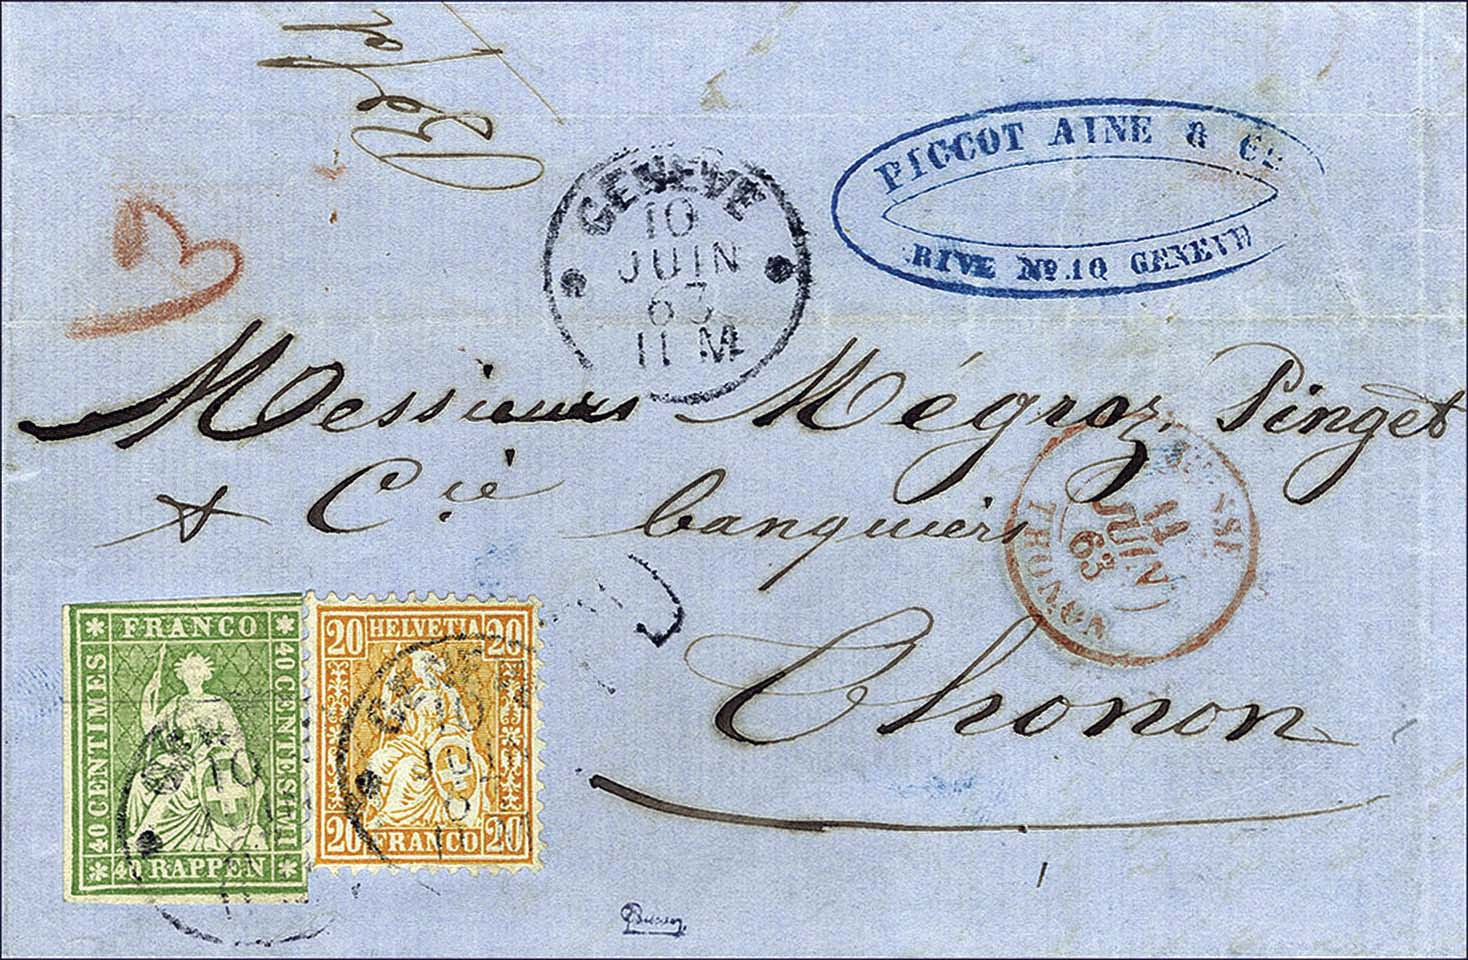 GENEVE
10
JUIN
63
11 M
PICCOT AINE & Cie
RIVE No. 10 GENEVE
Messieurs Mégroz, Pinget
& Cie banquiers
Thonon
SUISSE
11
JUIN
63
THONON
FRANCO
40 CENTIMES
40 CENTESIMI
40 RAPPEN
20 HELVETIA 20
20 FRANCO 20
GENE
10
JUI
10